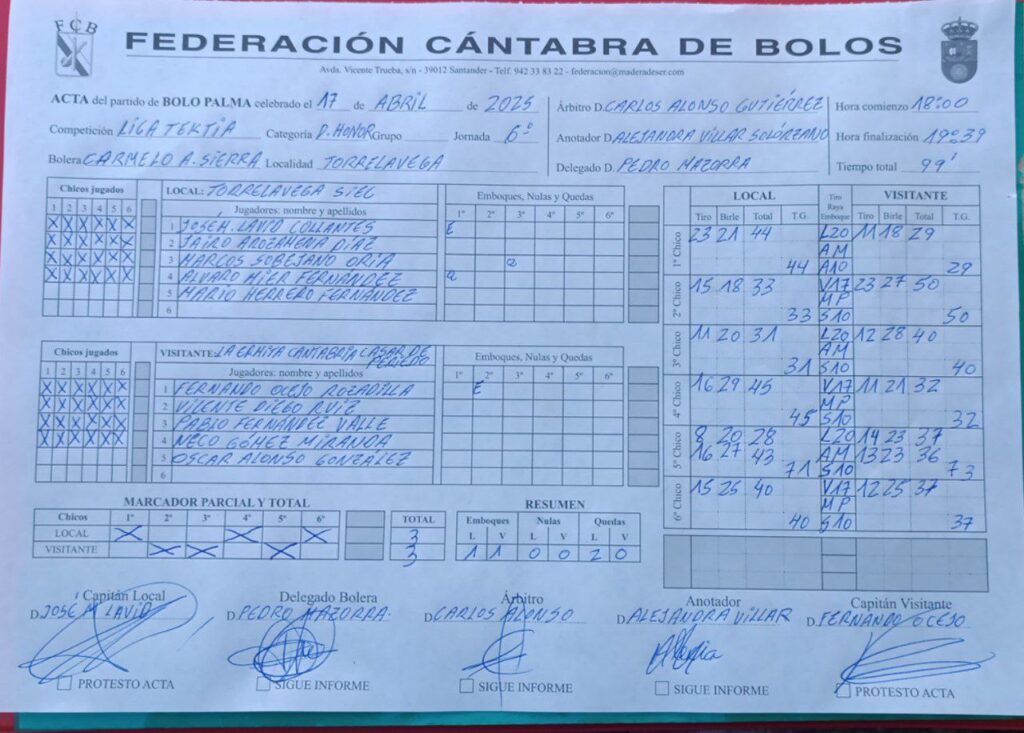 FCB
FEDERACIÓN CÁNTABRA DE BOLOS
Avda. Vicente Trueba, s/n - 39012 Santander - Telf. 942 33 83 22 - federacion@maderadeser.com
ACTA del partido de BOLO PALMA celebrado el 17 de ABRIL de 2025
Competición LIGA TEKTIA Categoría D. HONOR Grupo Jornada 6ª
Bolera CARMELO A. SIERRA Localidad TORRELAVEGA
Árbitro D. CARLOS ALONSO GUTIÉRREZ
Anotador D. ALEJANDRA VILLAR SOLÓRZANO
Delegado D. PEDRO MAZORRA
Hora comienzo 18:00
Hora finalización 19:39
Tiempo total 99'
Chicos jugados
1 2 3 4 5 6
X X X X X X
X X X X X X
X X X X X X
X X X X X X
LOCAL: TORRELAVEGA SIEC
Jugadores: nombre y apellidos
1 JOSE M. LAVID COLLANTES
2 JAIRO AROZAMENA DÍAZ
3 MARCOS SOBEJANO ORIA
4 ALVARO HIER FERNÁNDEZ
5 MARIO HERRERO FERNÁNDEZ
6
Emboques, Nulas y Quedas
1º 2º 3º 4º 5º 6º
E
Q
Q
Chicos jugados
1 2 3 4 5 6
X X X X X X
X X X X X X
X X X X X X
X X X X X X
VISITANTE: LA ERMITA CANTABRIA CASAR DE
PERIEDO
Jugadores: nombre y apellidos
1 FERNANDO OCEJO ROZADILLA
2 VICENTE DIEGO RUIZ
3 PABLO FERNÁNDEZ VALLE
4 NECO GÓMEZ MIRANDA
5 OSCAR ALONSO GONZÁLEZ
6
Emboques, Nulas y Quedas
1º 2º 3º 4º 5º 6º
E
LOCAL Tiro Raya Emboque VISITANTE
Tiro Birle Total T.G. Tiro Birle Total T.G.
1º Chico 23 21 44 L20 11 18 29
AM
44 A10 29
2º Chico 15 18 33 V17 23 27 50
MP
33 S10 50
3º Chico 11 20 31 L20 12 28 40
AM
31 S10 40
4º Chico 16 29 45 V17 11 21 32
MP
45 S10 32
5º Chico 8 20 28 L20 14 23 37
16 27 43 AM 13 23 36
71 S10 73
6º Chico 15 25 40 V17 12 25 37
MP
40 S10 37
MARCADOR PARCIAL Y TOTAL
Chicos 1º 2º 3º 4º 5º 6º TOTAL
LOCAL X X X 3
VISITANTE X X X 3
RESUMEN
Emboques Nulas Quedas
L V L V L V
1 1 0 0 2 0
Capitán Local
D. JOSE M LAVID
PROTESTO ACTA
Delegado Bolera
D. PEDRO MAZORRA.
SIGUE INFORME
Árbitro
D. CARLOS ALONSO
SIGUE INFORME
Anotador
D. ALEJANDRA VILLAR
SIGUE INFORME
Capitán Visitante
D. FERNANDO OCEJO
PROTESTO ACTA